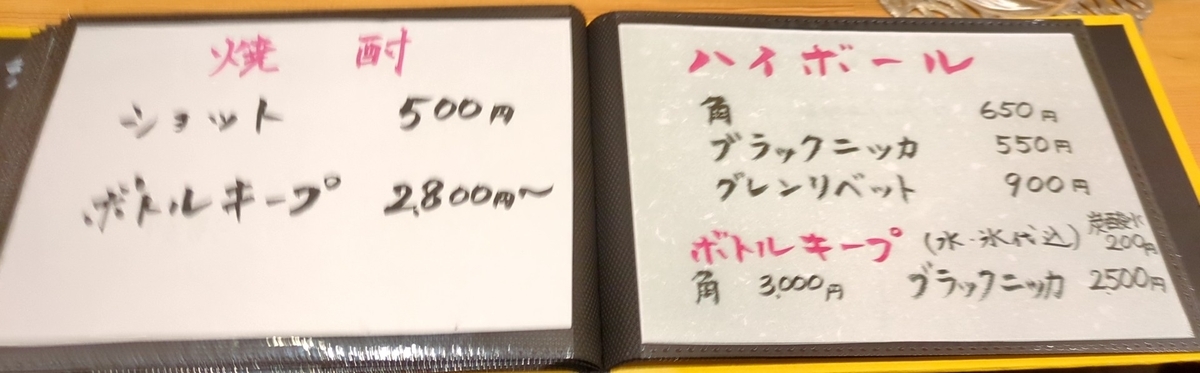 焼酎
ショット 500円
ボトルキープ 2,800円〜
ハイボール
角 650円
ブラックニッカ 550円
グレンリベット 900円
ボトルキープ (水・氷代込) 炭酸水 200円
角 3,000円 ブラックニッカ 2,500円